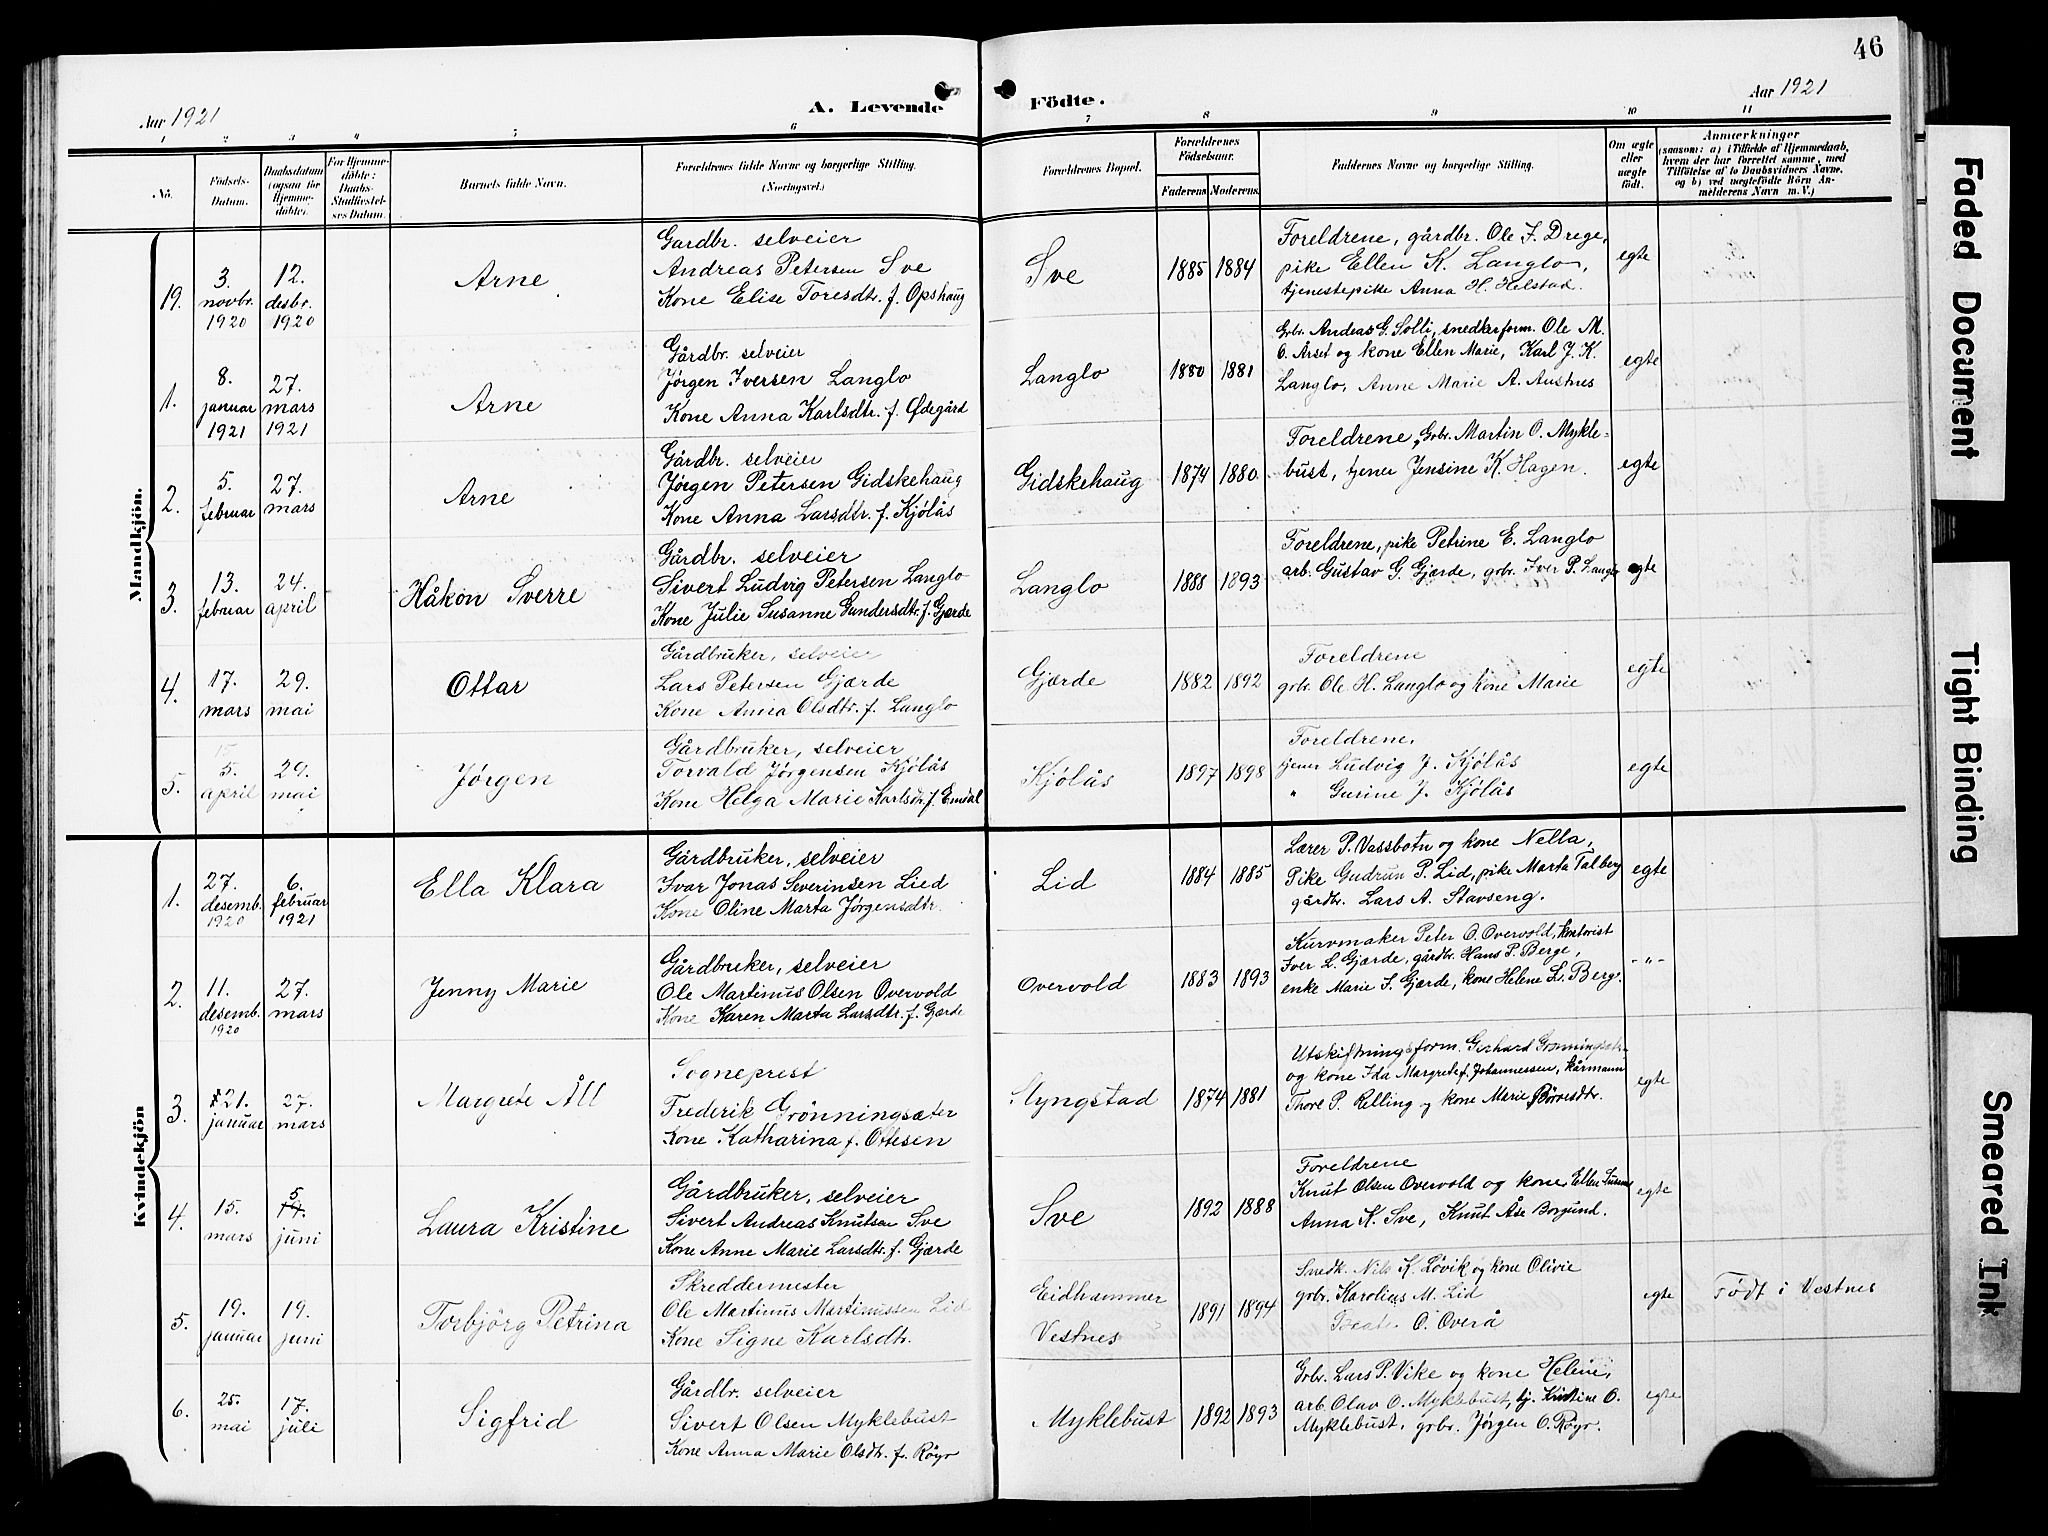 46
Aar 1921
A. Levende Födte.
Aar 1921
1 2 3 4 5 6 7 8 9 10 11
No.
Födsels-Datum.
Daabsdatum (ogsaa for Hjemmedöbte).
For Hjemmedöbte: Daabs-Stadfæstelses Datum.
Barnets fulde Navn.
Forældrenes fulde Navne og borgerlige Stilling. (Næringsvei.)
Forældrenes Bopæl.
Forældrenes Födselsaar.
Faderens Moderens
Faddernes Navne og borgerlige Stilling.
Om ægte eller uægte födt.
Anmærkninger
(saasom: a) i Tilfælde af Hjemmedaab, hvem der har forrettet samme, med Tilföielse af to Daabsvidners Navne. og b) ved uægtefödte Börn Anmelderens Navn m. V.)
Mandkjön.
19. 3. novbr. 1920 12. desbr. 1920 Arne
Gardbr. selveier
Andreas Petersen Sve
Kone Elise Toresdtr. f. Opshaug
Sve 1885 1884
Foreldrene, gårdbr. Ole J. Drege,
pike Ellen K. Langlo,
tjenestepike Anna H. Helstad.
egte
1. 8. januar 1921 27. mars 1921 Arne
Gårdbr. selveier
Jørgen Iversen Langlo
Kone Anna Karlsdtr. f. Ødegård
Langlo 1880 1881
Grbr. Andeas G. Solli, snedkerform. Ole M.
O. Årset og kone Ellen Marie, Karl J. K.
Langlo, Anne Marie A. Austnes
egte
2. 5. februar 27. mars Arne
Gårdbr. selveier
Jørgen Petersen Gidskehaug
Kone Anna Larsdtr. f. Kjölås
Gidskehaug 1874 1880
Foreldrene, Grbr. Martin O. Mykle-
bust, tjener Jensine K. Hagen.
egte
3. 13. februar 24. april Håkon Sverre
Gårdbr. selveier
Sivert Ludvig Petersen Langlo
Kone Julie Susanne Gundersdtr. f. Gjærde
Langlo 1888 1893
Foreldrene, pike Petrine E. Langlo
arb. Gustav G. Gjærde, grbr. Iver P. Langlo
egte
4. 17. mars 29. mai Ottar
Gårdbruker, selveier
Lars Petersen Gjærde
Kone Anna Olsdtr. f. Langlo
Gjærde 1882 1892
Foreldrene
grbr. Ole H. Langlo og kone Marie
egte
5. 5. april 29. mai Jørgen
Gårdbruker, selveier
Torvald Jørgensen Kjölås
Kone Helga Marie Karlsdtr. f. Emdal
Kjölås 1897 1898
Foreldrene,
tjener Ludvig J. Kjölås
" Gurine J. Kjölås
egte
Kvindekjön
1. 27. desemb. 1920 6. februar 1921 Ella Klara
Gårdbruker, selveier
Ivar Jonas Severinsen Lied
Kone Oline Marta Jørgensdtr.
Lid 1884 1885
Lærer P. Vassbotn og kone Nella,
Pike Gudrun P. Lid, pike Marta Talberg
gårdbr. Lars A. Stavseng.
egte
2. 11. desemb. 1920 27. mars Jenny Marie
Gårdbruker, selveier
Ole Martinus Olsen Overvold
Kone Karen Marta Larsdtr. f. Gjærde
Overvold 1883 1893
Kurvmaker Peter O. Overvold, kontorist
Iver L. Gjærde, gårdbr. Hans P. Berge,
enke Marie I. Gjærde, kone Helene L. Berge.
- " -
3. 21. januar 27. mars Margrete Åll
Sogneprest
Frederik Grönningsæter
Kone Katharina f. Ottesen
Slyngstad 1874 1881
Utskiftningsform. Gerhard Grønningsæter
og kone Ida Margrete f. Johannessen, kårmann
Thore P. Relling og kone Marie Børresdtr.
egte
4. 15. mars 5. juni Laura Kristine
Gårdbruker, selveier
Sivert Andreas Knutsen Sve
Kone Anne Marie Larsdtr. f. Gjærde
Sve 1892 1888
Foreldrene
Knut Olsen Overvold og kone Ellen
Anna K. Sve, Knut Åse Borgund.
egte
5. 19. januar 19. juni Torbjörg Petrina
Skreddermester
Ole Martinus Martinussen Lid
Kone Signe Karlsdtr.
Eidhammer
Vestnes
1891 1894
Snedk. Nils K. Lövik og kone Olivie
grbr. Karolius M. Lid
Beate O. Overå
egte
Födt i Vestnes
6. 25. mai 17. juli Sigfrid
Gårdbr. selveier
Sivert Olsen Myklebust
Kone Anna Marie Olsdtr. f. Röyr
Myklebust 1892 1893
Grbr. Lars P. Vike og kone Heline,
arb. Olav O. Myklebust, tj. Kristine O.
Myklebust, grbr. Jørgen O. Røyr.
egte
Faded Document
Tight Binding
Smeared Ink